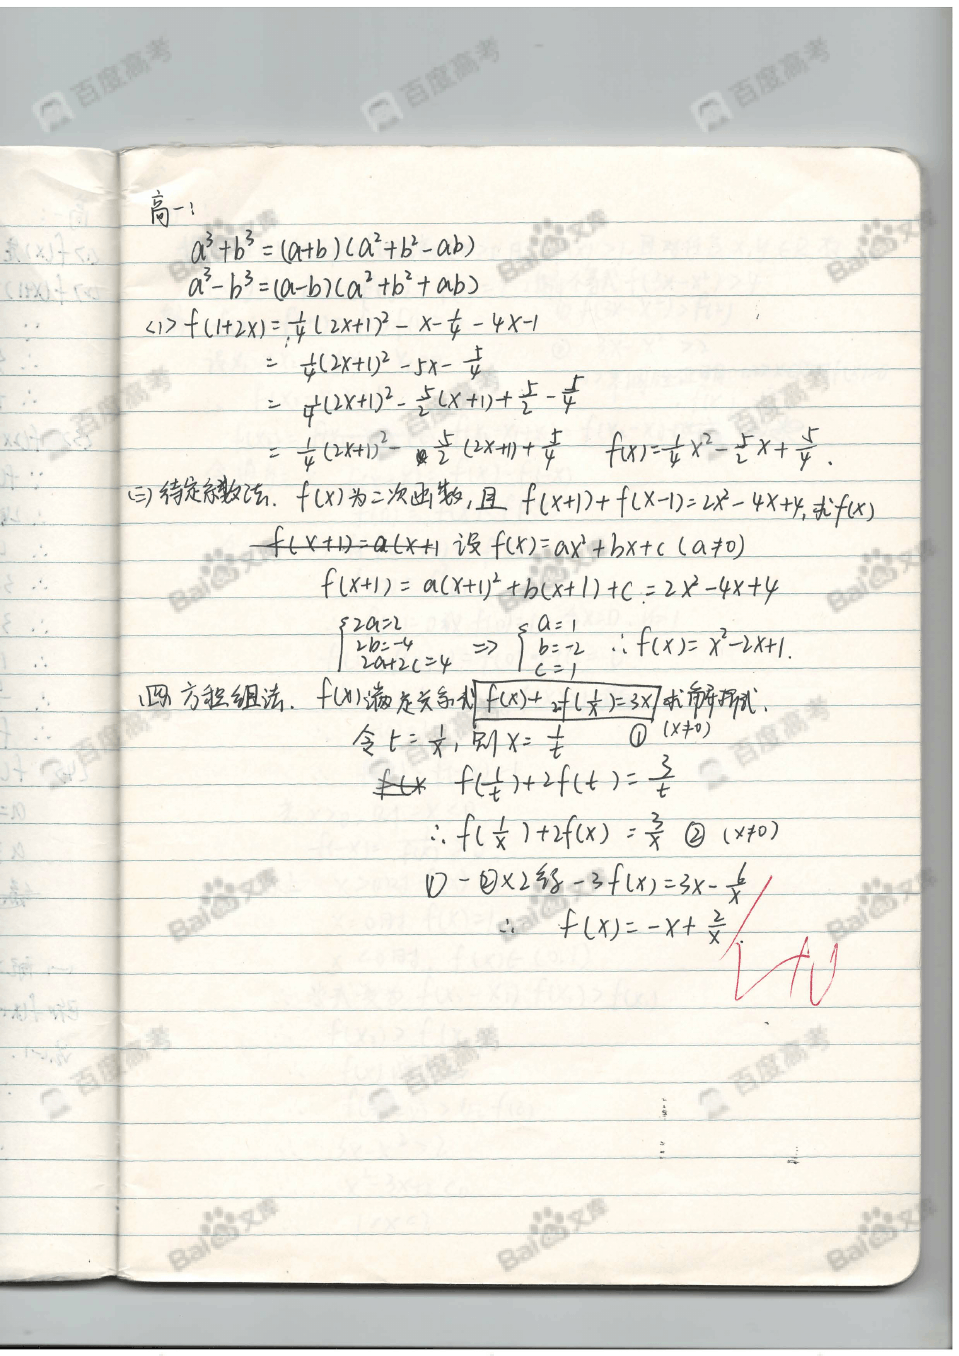 高一:
a³+b³=(a+b)(a²+b²-ab)
a³-b³=(a-b)(a²+b²+ab)
<1> f(1+2x)=1/4(2x+1)²-x-1/4-4x-1
= 1/4(2x+1)²-5x-5/4
= 1/4(2x+1)²-5/2(x+1)+5/2-5/4
= 1/4(2x+1)²-5/2(2x+1)+5/4 f(x)=1/4x²-5/2x+5/4.
(三)待定系数法. f(x)为二次函数,且 f(x+1)+f(x-1)=2x²-4x+4,求f(x)
f(x+1)=a(x+1 设f(x)=ax²+bx+c (a≠0)
f(x+1)=a(x+1)²+b(x+1)+c=2x²-4x+4
{2a=2 2b=-4 2a+2c=4 => {a=1 b=-2 c=1 ∴f(x)=x²-2x+1.
(四)方程组法. f(x)满足关系式 f(x)+2f(1/x)=3x 求解析式.
令t=1/x,则x=1/t ① (x≠0)
f(x f(1/t)+2f(t)=3/t
∴f(1/x)+2f(x)=3/x ② (x≠0)
①-②×2得-3f(x)=3x-6/x
∴ f(x)=-x+2/x.
百度高考
Baidu文库